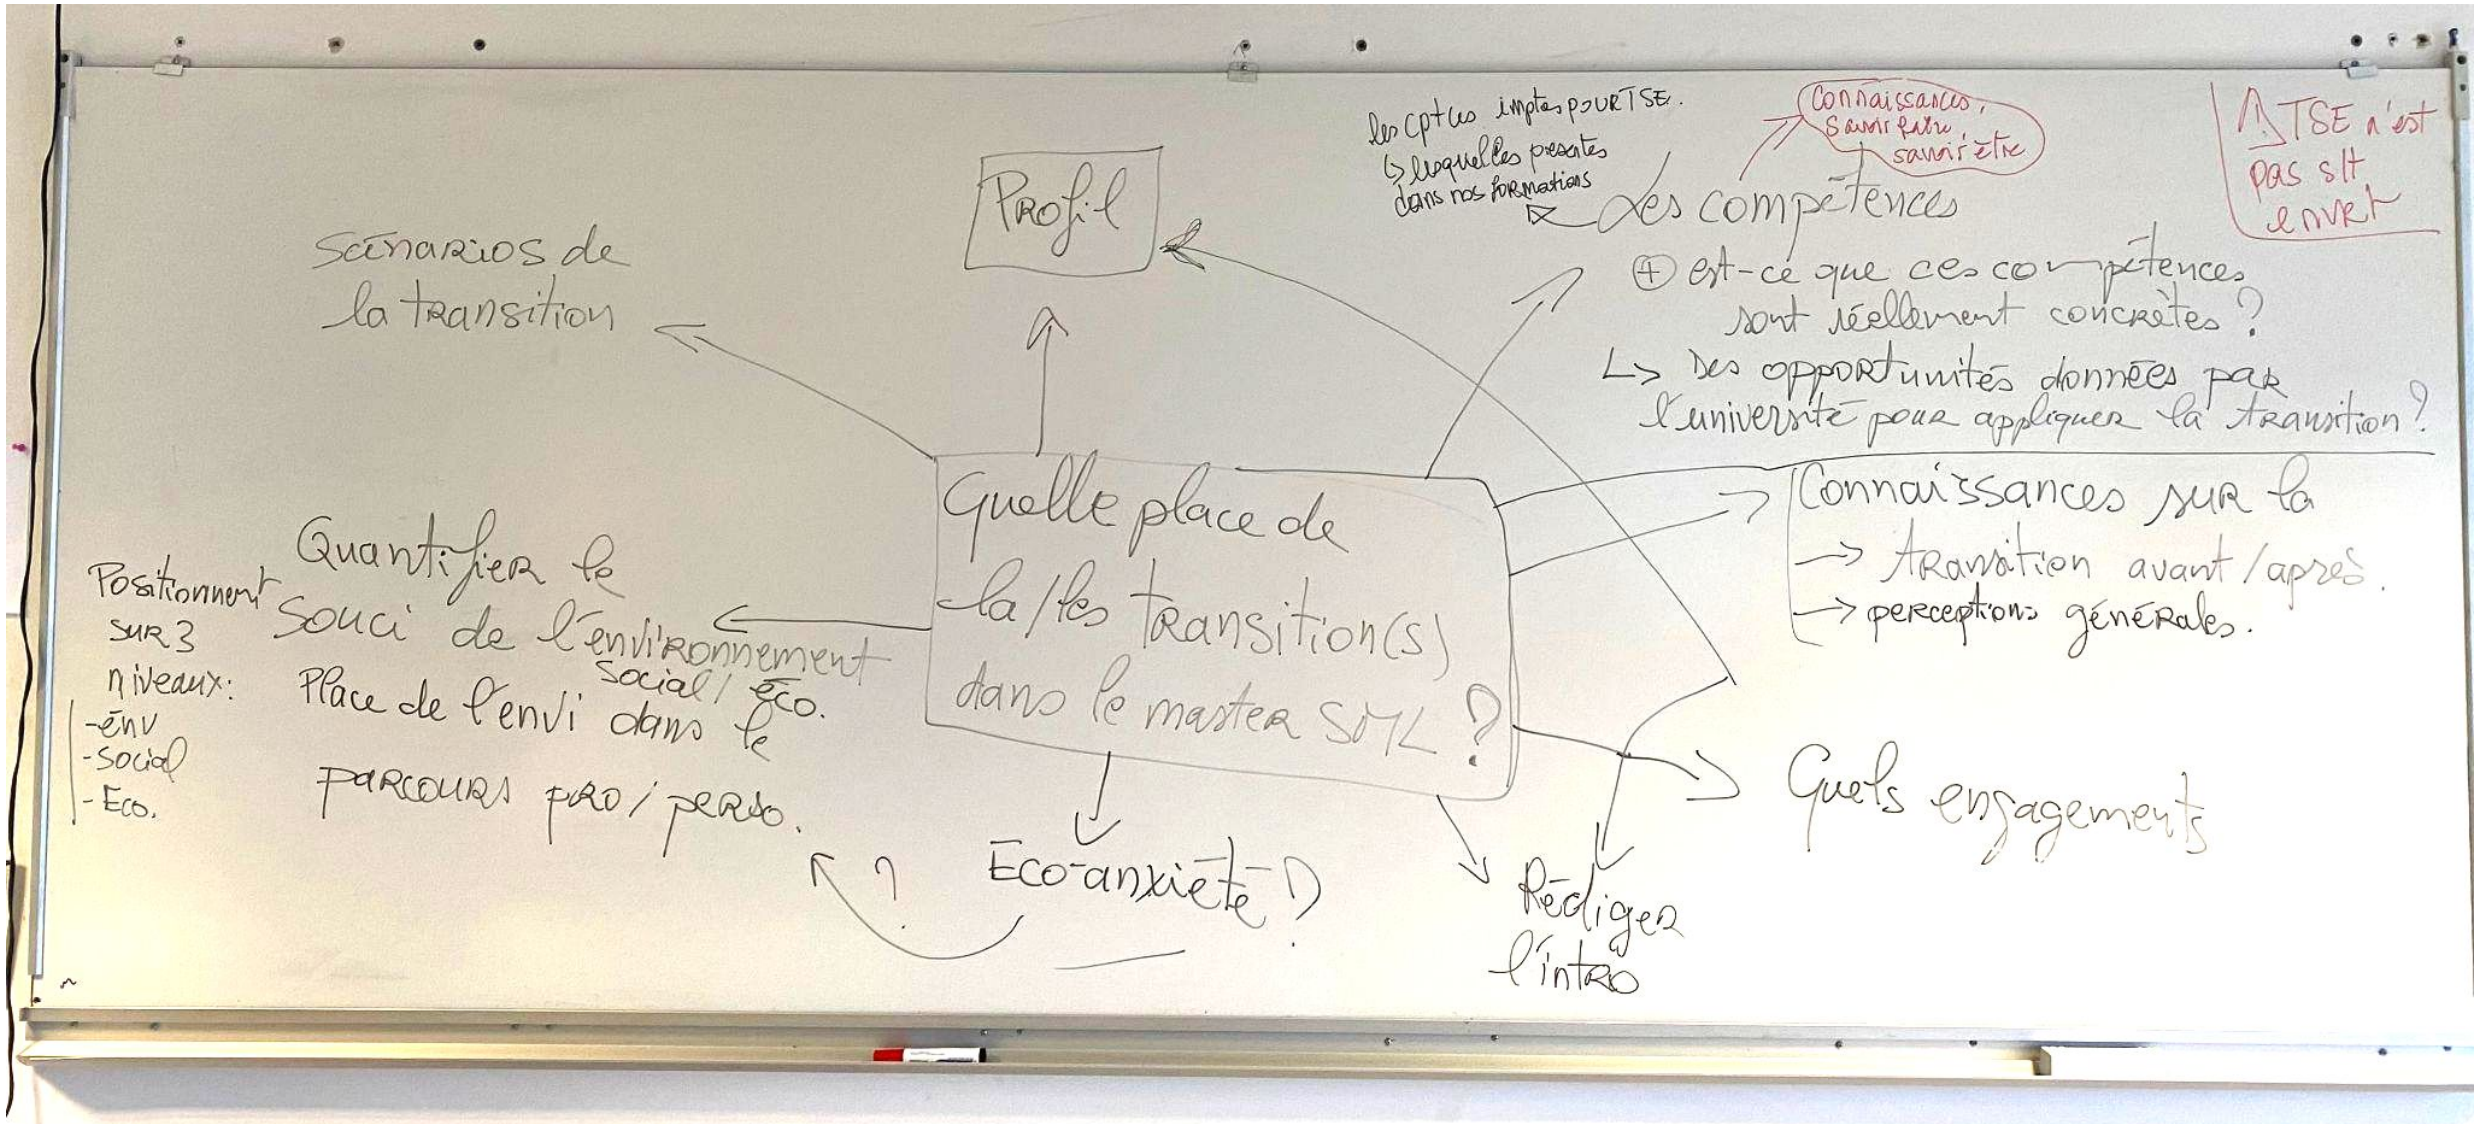 Profil
Scénarios de
la transition
les cptces imptes pour TSE.
↳ lesquelles presentes
dans nos formations
Connaissances,
Savoir faire,
savoir être
⚠ TSE n'est
pas slt
envrt
Les compétences
⊕ est-ce que ces compétences
sont réellement concrètes ?
↳ Des opportunités données par
l'université pour appliquer la transition ?
Quelle place de
la/les transition(s)
dans le master SML ?
Connaissances sur la
→ transition avant/après.
→ perceptions générales.
Quantifier le
souci de l'environnement
social / éco.
Place de l'envi dans le
parcours pro/perso.
Positionnent
sur 3
niveaux:
- env
- social
- Eco.
?
Eco-anxiété ?
Quels engagements
Rédiger
l'intro